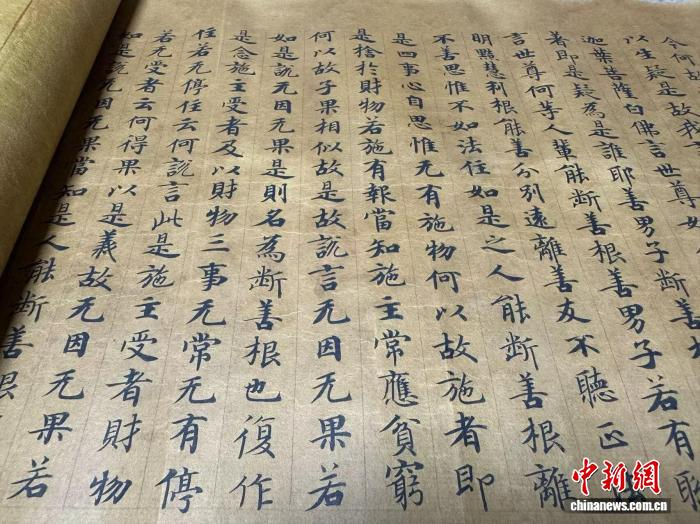 以生疑是故我
迦葉菩薩白佛言世尊
者即是疑為是誰耶善男子
言世尊何等人輩能斷善根善男子若有聰
明黠慧利根能善分別遠離善友不聽正
不善思惟不如法住如是之人能斷善根離
是四事心自思惟无有施物何以故施者即
是捨於財物若施有報當知施主常應貧窮
何以故子果相似故是故說言无因无果若
如是說无因无果是則名為斷善根也復作
是念施主受者及以財物三事无常无有停
住若无停住云何說言此是施主受者財物
若无受者云何得果以是義故无因无果若
如是說无因无果當知是人能斷善根
中新网
chinanews.com